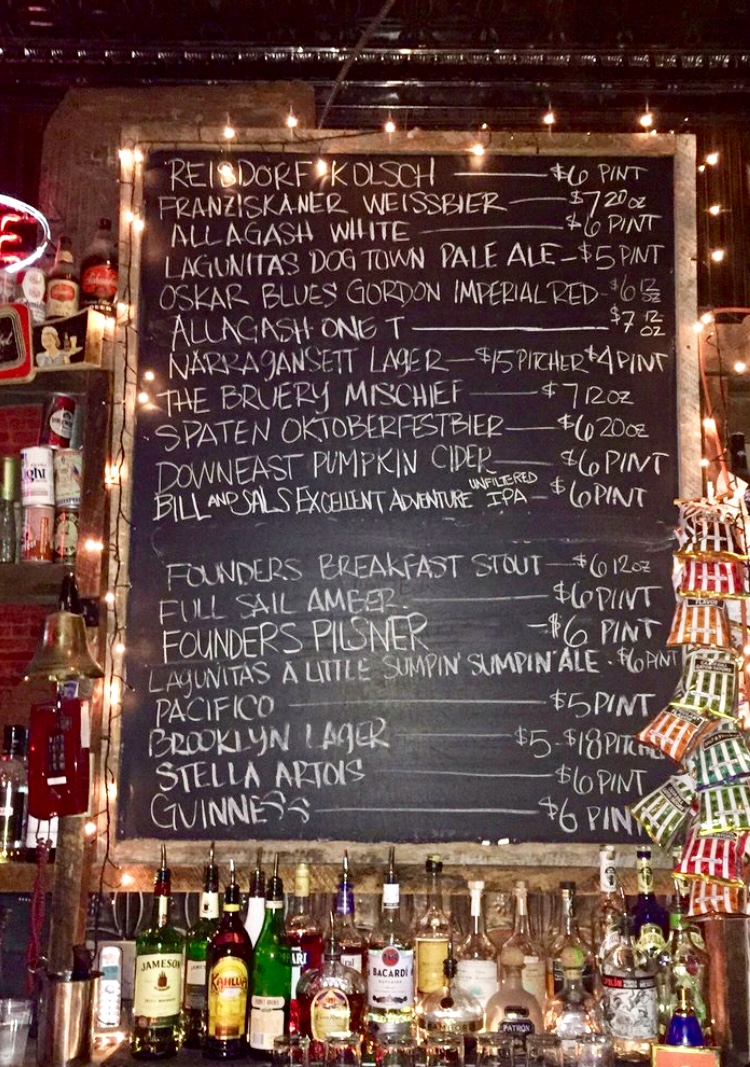 REISDORF KOLSCH $6 PINT
FRANZISKANER WEISSBIER $7 20oz
ALLAGASH WHITE $6 PINT
LAGUNITAS DOGTOWN PALE ALE $5 PINT
OSKAR BLUES GORDON IMPERIAL RED $6 12 oz
ALLAGASH ONE T $7 12 oz
NARRAGANSETT LAGER $15 PITCHER $4 PINT
THE BRUERY MISCHIEF $7 12oz
SPATEN OKTOBERFESTBIER $6 20oz
DOWNEAST PUMPKIN CIDER $6 PINT
BILL AND SALS EXCELLENT ADVENTURE UNFILTERED IPA $6 PINT
FOUNDERS BREAKFAST STOUT $6 12oz
FULL SAIL AMBER $6 PINT
FOUNDERS PILSNER $6 PINT
LAGUNITAS A LITTLE SUMPIN' SUMPIN' ALE $6 PINT
PACIFICO $5 PINT
BROOKLYN LAGER $5 - $18 PITCHE
STELLA ARTOIS $6 PINT
GUINNESS $6 PINT
JAMESON
KAHLUA
BACARDI
PATRÓN